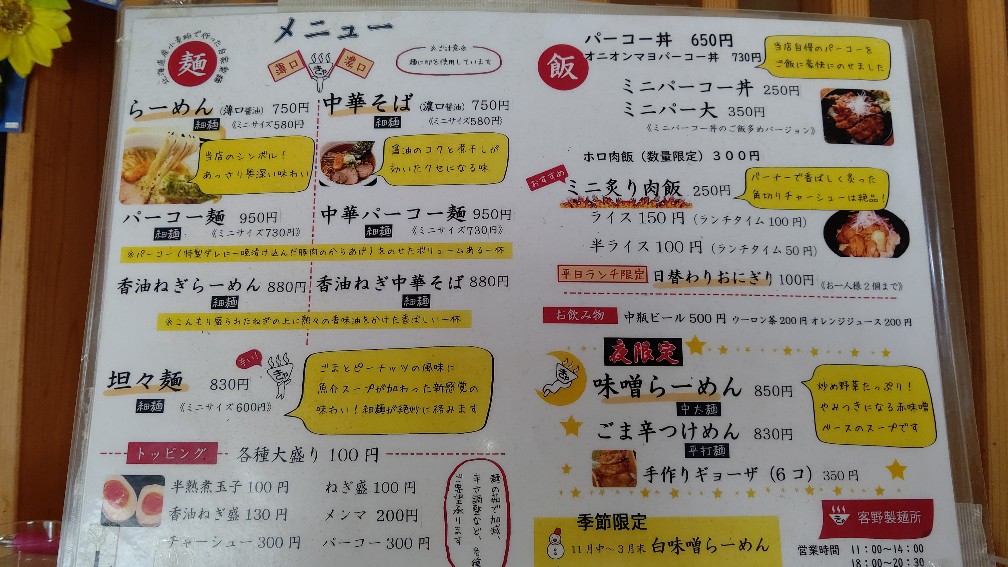 メニュー
北海道産小麦粉で作った自家製麺
麺
薄口
濃口
※ご注意※
麺に卵を使用しています
らーめん (薄口醤油) 750円
細麺 《ミニサイズ580円》
当店のシンボル！
あっさり奥深い味わい
中華そば (濃口醤油) 750円
細麺 《ミニサイズ580円》
醤油のコクと煮干しが
効いたクセになる味
パーコー麺 950円
細麺 《ミニサイズ730円》
中華パーコー麺 950円
細麺 《ミニサイズ730円》
※パーコー(特製ダレに一晩漬け込んだ豚肉のからあげ)をのせたボリュームある一杯
香油ねぎらーめん 880円
細麺
香油ねぎ中華そば 880円
細麺
※こんもり盛られたねぎの上に熱々の香味油をかけた香ばしい一杯
坦々麺 830円
細麺 《ミニサイズ600円》
辛い！
ごまとピーナッツの風味に
魚介スープが加わった新感覚の
味わい！細麺が絶妙に絡みます
トッピング 各種大盛り 100円
半熟煮玉子 100円
ねぎ盛 100円
香油ねぎ盛 130円
メンマ 200円
チャーシュー 300円
パーコー 300円
麺の茹で加減、
飯
パーコー丼 650円
オニオンマヨパーコー丼 730円
当店自慢のパーコーを
ご飯に豪快にのせました
ミニパーコー丼 250円
ミニパー大 350円
《ミニパーコー丼のご飯多めバージョン》
ホロ肉飯(数量限定) 300円
おすすめ
ミニ炙り肉飯 250円
バーナーで香ばしく炙った
角切りチャーシューは絶品！
ライス 150円 (ランチタイム100円)
半ライス 100円 (ランチタイム50円)
平日ランチ限定 日替わりおにぎり 100円 《お一人様2個まで》
お飲み物 中瓶ビール 500円 ウーロン茶 200円 オレンジジュース 200円
夜限定
味噌らーめん 850円
中太麺
炒め野菜たっぷり！
やみつきになる赤味噌
ベースのスープです
ごま辛つけめん 830円
平打麺
手作りギョーザ (6コ) 350円
季節限定
11月中〜3月末 白味噌らーめん
客野製麺所
営業時間 11：00〜14：00
18：00〜20：30